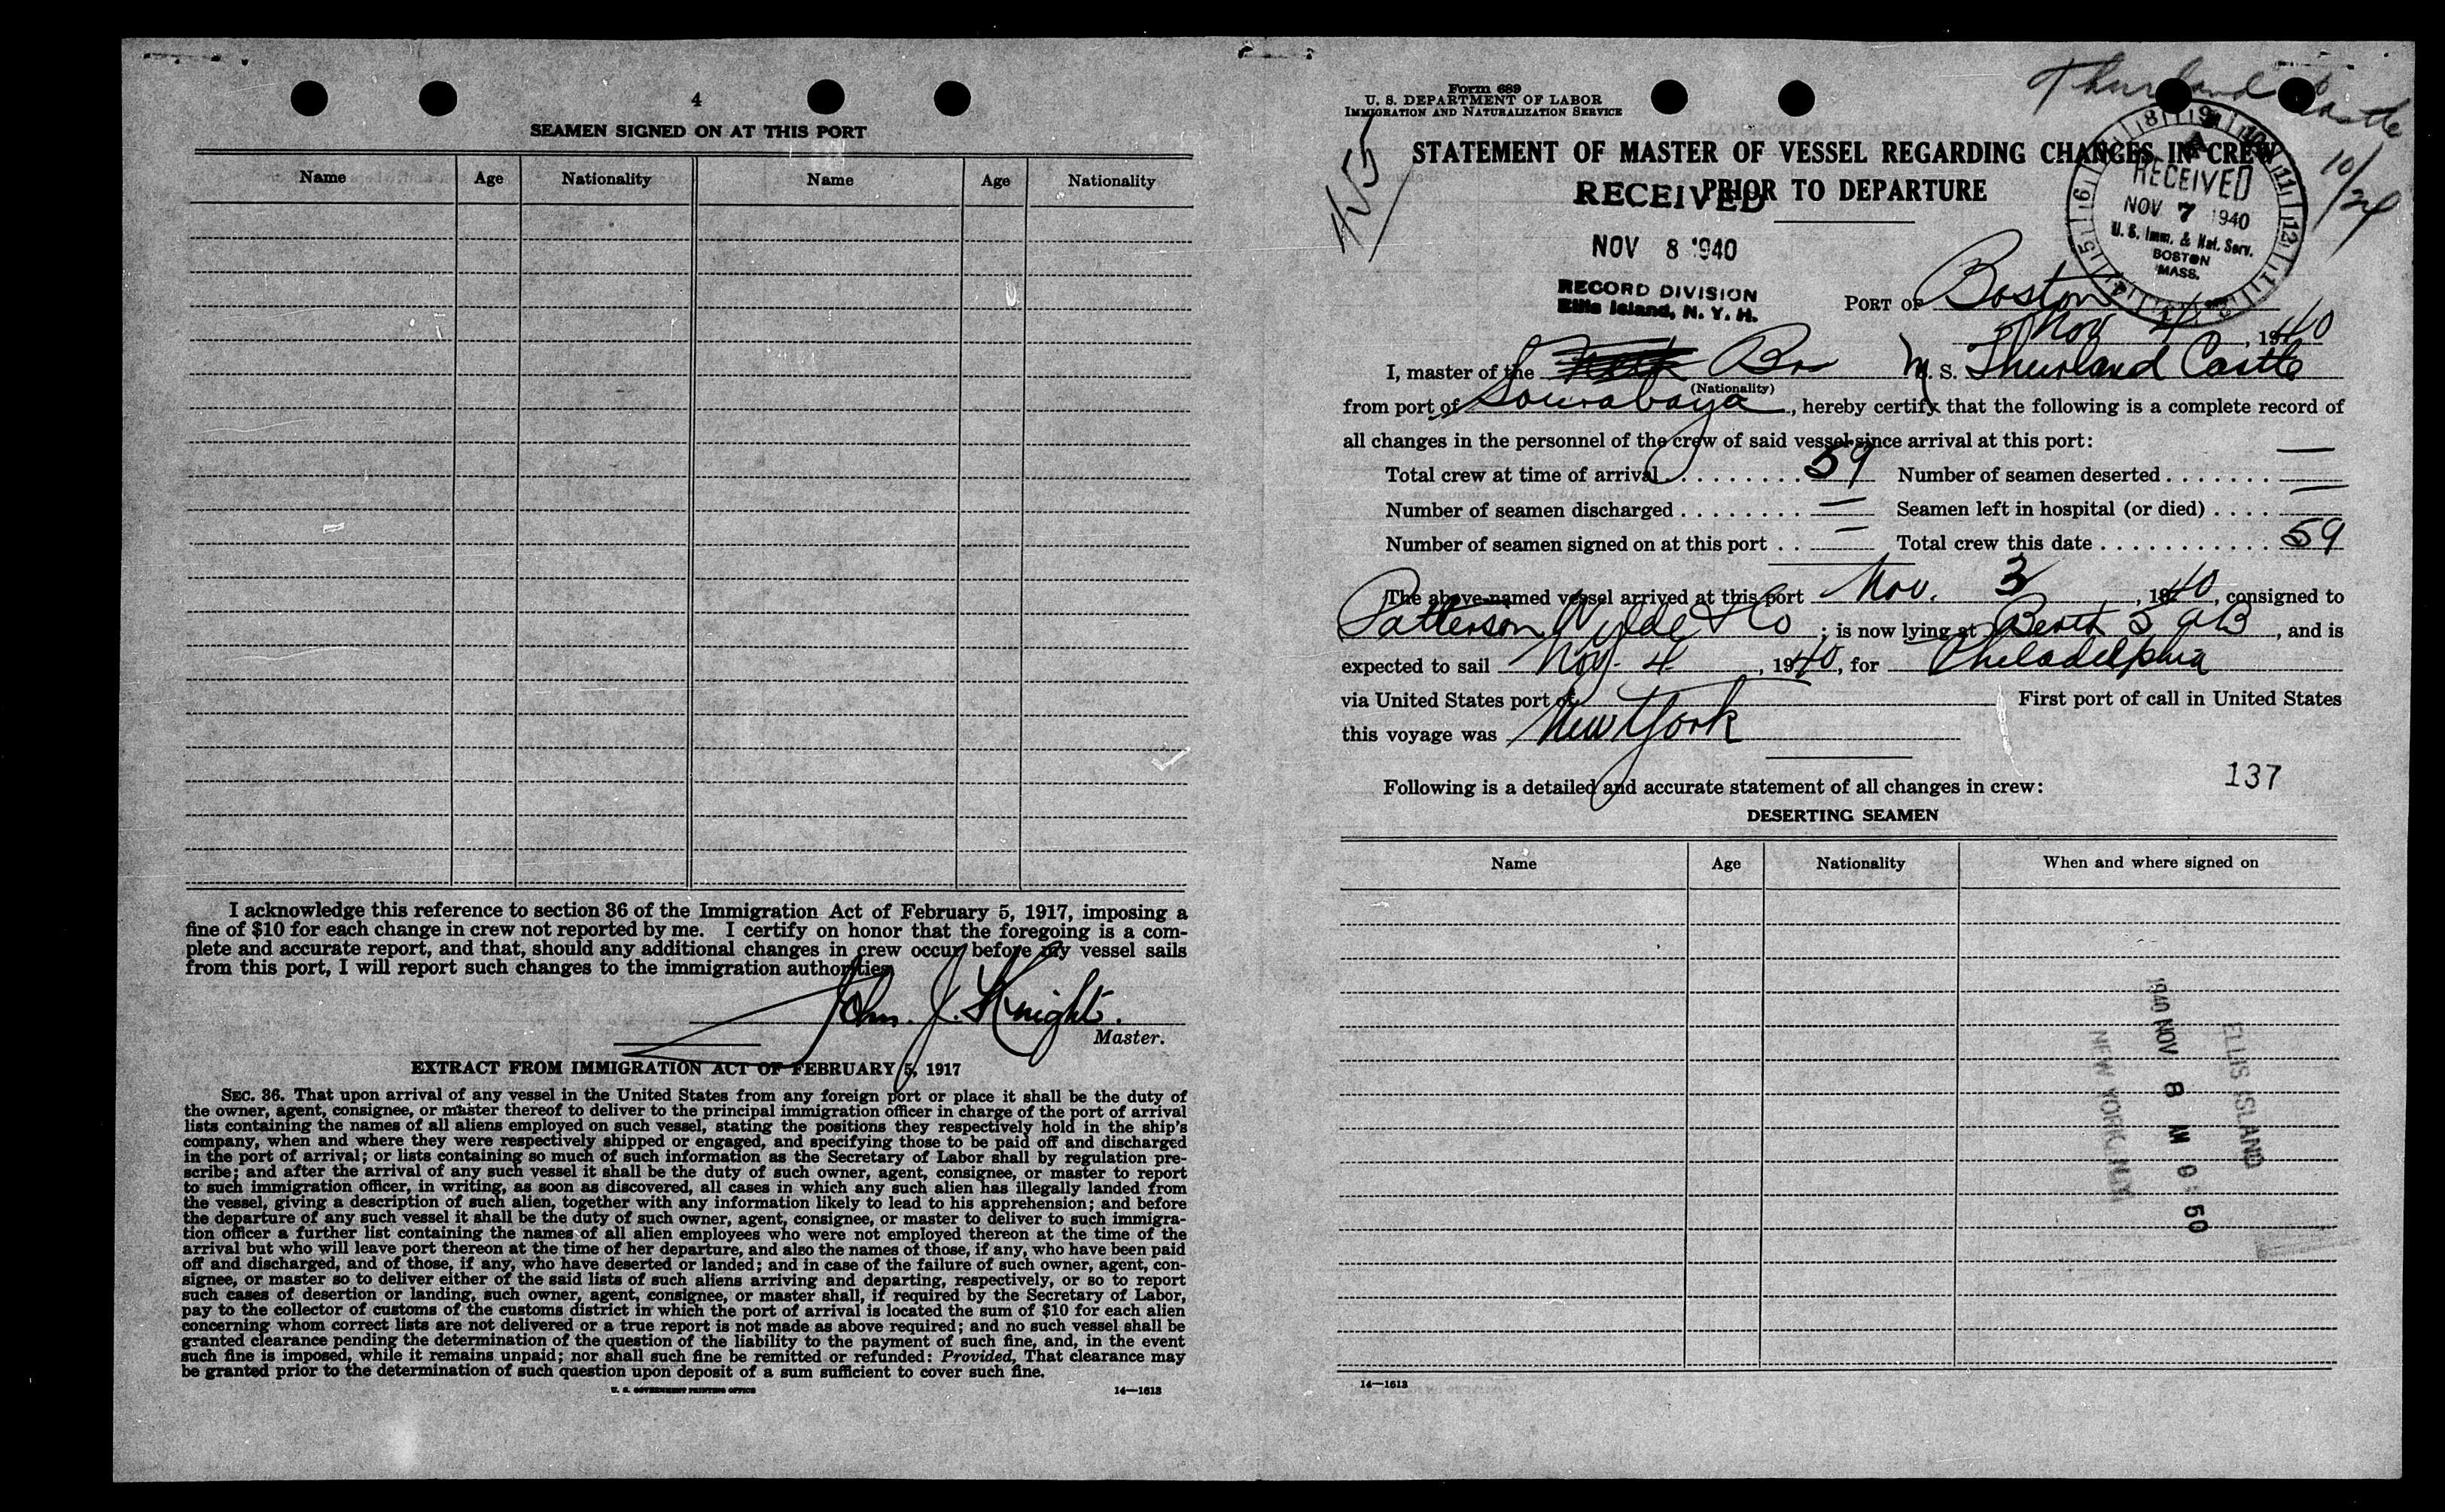 4
SEAMEN SIGNED ON AT THIS PORT
Name Age Nationality Name Age Nationality
I acknowledge this reference to section 36 of the Immigration Act of February 5, 1917, imposing a
fine of $10 for each change in crew not reported by me. I certify on honor that the foregoing is a com-
plete and accurate report, and that, should any additional changes in crew occur before my vessel sails
from this port, I will report such changes to the immigration authorities.
John. J. Knight.
Master.
EXTRACT FROM IMMIGRATION ACT OF FEBRUARY 5, 1917
SEC. 36. That upon arrival of any vessel in the United States from any foreign port or place it shall be the duty of
the owner, agent, consignee, or master thereof to deliver to the principal immigration officer in charge of the port of arrival
lists containing the names of all aliens employed on such vessel, stating the positions they respectively hold in the ship's
company, when and where they were respectively shipped or engaged, and specifying those to be paid off and discharged
in the port of arrival; or lists containing so much of such information as the Secretary of Labor shall by regulation pre-
scribe; and after the arrival of any such vessel it shall be the duty of such owner, agent, consignee, or master to report
to such immigration officer, in writing, as soon as discovered, all cases in which any such alien has illegally landed from
the vessel, giving a description of such alien, together with any information likely to lead to his apprehension; and before
the departure of any such vessel it shall be the duty of such owner, agent, consignee, or master to deliver to such immigra-
tion officer a further list containing the names of all alien employees who were not employed thereon at the time of the
arrival but who will leave port thereon at the time of her departure, and also the names of those, if any, who have been paid
off and discharged, and of those, if any, who have deserted or landed; and in case of the failure of such owner, agent, con-
signee, or master so to deliver either of the said lists of such aliens arriving and departing, respectively, or so to report
such cases of desertion or landing, such owner, agent, consignee, or master shall, if required by the Secretary of Labor,
pay to the collector of customs of the customs district in which the port of arrival is located the sum of $10 for each alien
concerning whom correct lists are not delivered or a true report is not made as above required; and no such vessel shall be
granted clearance pending the determination of the question of the liability to the payment of such fine, and, in the event
such fine is imposed, while it remains unpaid; nor shall such fine be remitted or refunded: Provided, That clearance may
be granted prior to the determination of such question upon deposit of a sum sufficient to cover such fine.
U. S. GOVERNMENT PRINTING OFFICE 14—1613
Form 689
U. S. DEPARTMENT OF LABOR
IMMIGRATION AND NATURALIZATION SERVICE
Thurland Castle
10/24
STATEMENT OF MASTER OF VESSEL REGARDING CHANGES IN CREW
PRIOR TO DEPARTURE
RECEIVED
NOV 8 1940
RECORD DIVISION
Ellis Island, N. Y. H.
RECEIVED
NOV 7 1940
U. S. Imm. & Nat. Serv.
BOSTON
MASS.
PORT OF Boston
Nov 4, 1940
I, master of the Br M. S. Thurland Castle
(Nationality)
from port of Sourabaya, hereby certify that the following is a complete record of
all changes in the personnel of the crew of said vessel since arrival at this port:
Total crew at time of arrival 59 Number of seamen deserted —
Number of seamen discharged — Seamen left in hospital (or died) —
Number of seamen signed on at this port — Total crew this date 59
The above-named vessel arrived at this port Nov. 3, 1940, consigned to
Patterson Wylde & Co; is now lying at Berth 5 AB, and is
expected to sail Nov. 4, 1940, for Philadelphia
via United States port of — First port of call in United States
this voyage was New York
Following is a detailed and accurate statement of all changes in crew:
137
DESERTING SEAMEN
Name Age Nationality When and where signed on
ELLIS ISLAND
1940 NOV 8 AM 9 50
14—1613